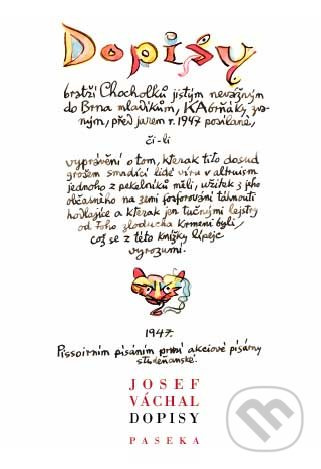 Dopisy
bratří Chocholků jistým nevážným
do Brna mladíkům, KAbrňáky zva-
ným, před jarem r. 1947 posílané,
či-li
vyprávění o tom, kterak tito dosud
grošem smradící lidé víru v altruism
jednoho z pekelníků měli, užitek z jeho
občasného na zemi fosforování táhnouti
hodlajíce a kterak jen tučnými lejstry
od toho zloducha krmeni byli,
což se z této knížky lépeje
vyrozumí.
1947.
Pissoirním písáním první akciové písárny
studeňanské.
JOSEF
VÁCHAL
DOPISY
PASEKA
m